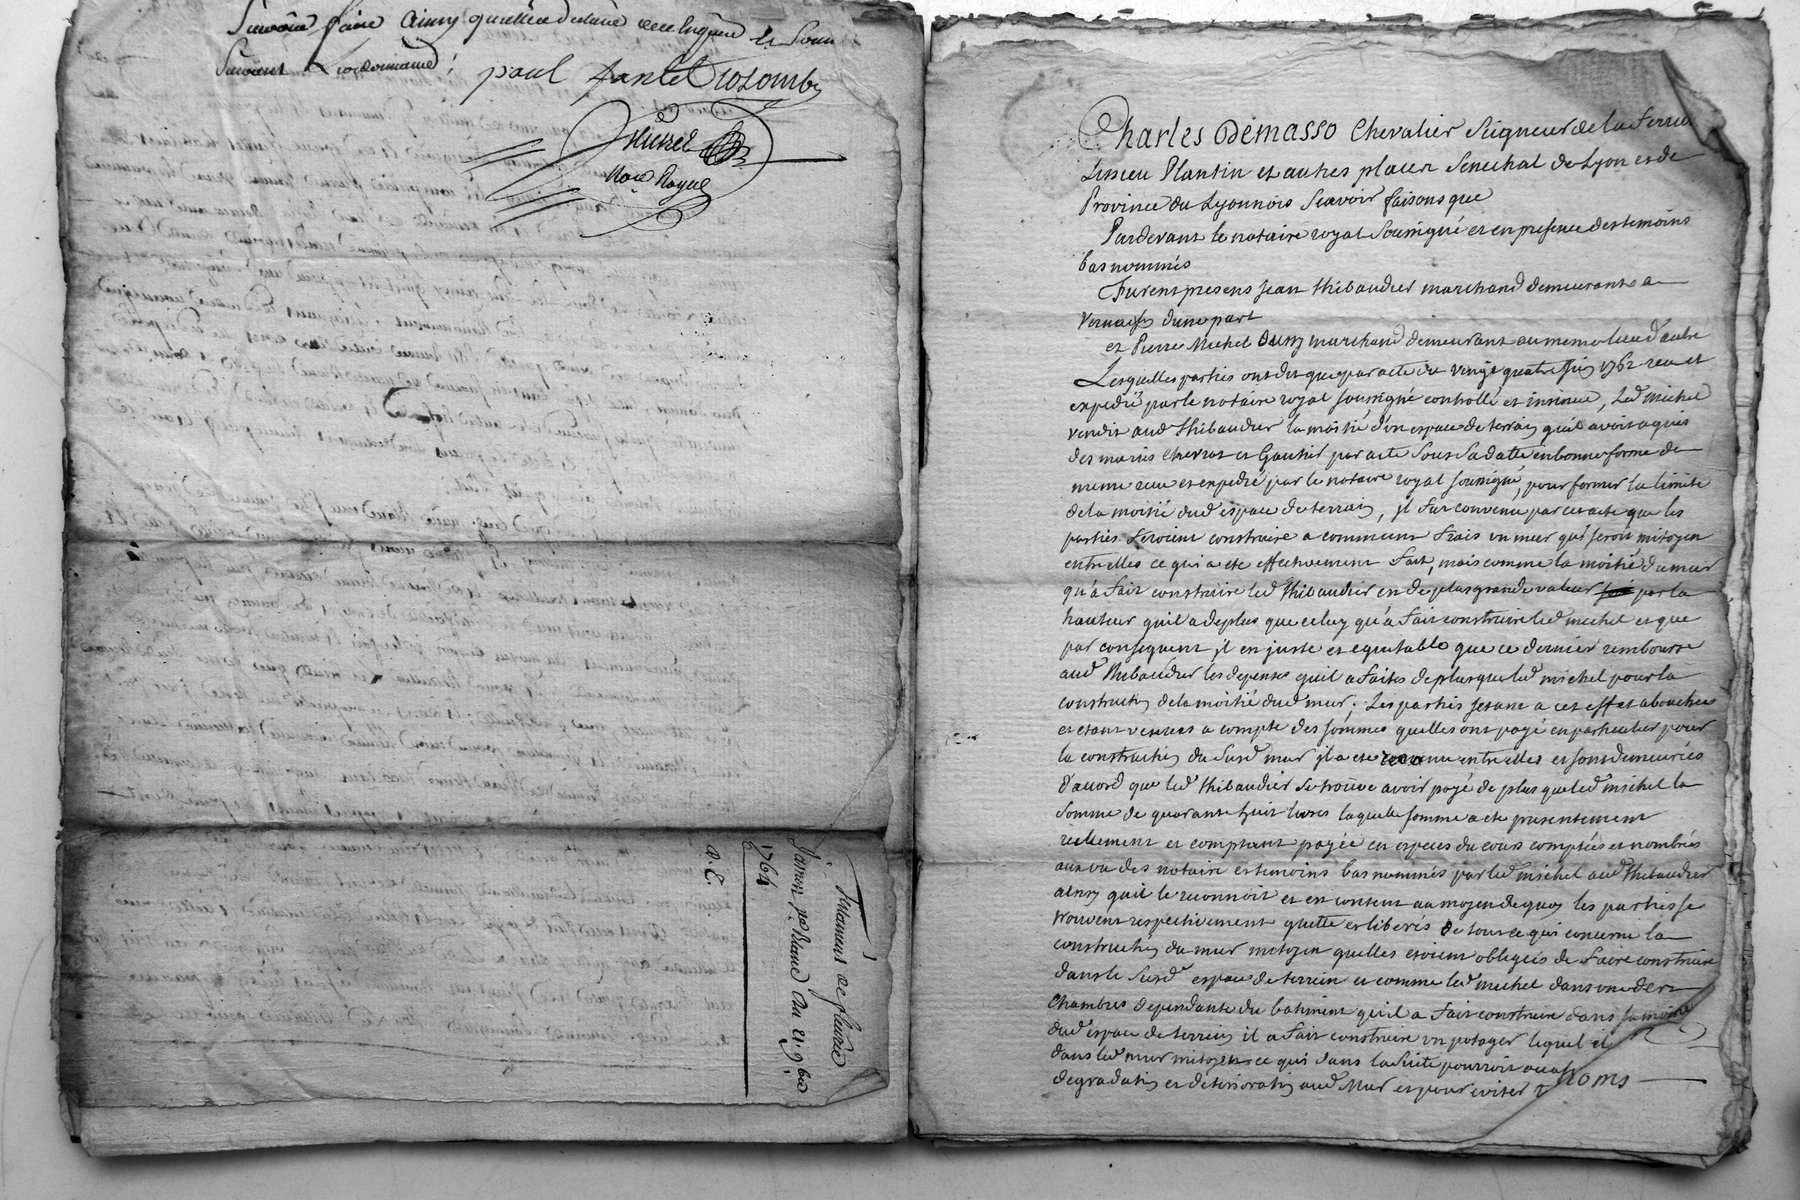 Sçavoir faire Ainsy quelle a declaré de ce enquise et Somm
Suivant Lordonnance ;
paul fantet Colomb
thienet
No.re Royal
Testament de fleurie
Jeames p.e Rame du 21. 9.bre
1764
a. C.
Charles Démasso Chevalier Seigneur de la Ferriere
Lissieu Plantin et autres places Senechal de Lyon et de
Province du Lyonnois Scavoir faisons que
Pardevant le notaire royal Soussigné et en presence des temoins
bas nommés
Furent presens Jean thibaudier marchand demeurant a
dune part
et Pierre Michel marchand demeurant au meme lieu d'autre
Lesquelles parties ont dit que par acte du vingt quatre 1762 recu et
expedié par le notaire royal soussigné controllé et insinué, Led michel
vendit aud thibaudier la moitié d'un espace de terrain qu'il avoit aquis
des mariés Chevrot et Gautier par acte Sous Sa datte en bonne forme de
meme recu et expedié par le notaire royal soussigné, pour former la limite
de la moitié dud espace de terrain, il fut convenu par cet acte que les
parties feroient construire a communs frais un mur qui seroit mitoyen
entr'elles ce qui a eté effectivement fait, mais comme la moitié du mur
qu'a fait construire led thibaudier est de plus grande valeur par la
hauteur qu'il a de plus que celuy qu'a fait construire led michel et que
par consequent il est juste et equitable que ce dernier rembourse
aud thibaudier les depenses qu'il a faites de plus que led michel pour la
construction de la moitié dud mur ; Les parties setant a cet effet abouchées
et etant venues a compte des sommes quelles ont payé en particulier pour
la construction du Susd mur il a eté reconnu entre elles et sont demeurées
d'accord que led thibaudier Se trouve avoir payé de plus que led michel la
Somme de quarante huit livres laquelle somme a eté presentement
reellement et comptant payée en especes du cours comptées et nombrées
au vu des notaire et temoins bas nommés par led michel aud thibaudier
ainsy qu'il le reconnoit et en content au moyen de quoy les parties se
trouvent respectivement quitte et liberés de tout ce qui concerne la
construction du mur mitoyen quelles etoient obligées de faire construire
dans le Susd espace de terrein et comme led michel dans une des
Chambres dependante du batiment qu'il a fait construire dans sa moitié
dud espace de terrein il a fait construire un potager lequel il
dans led mur mitoyen ce qui dans la Suite pourroit
degradation et deterioration aud Mur et pour eviter